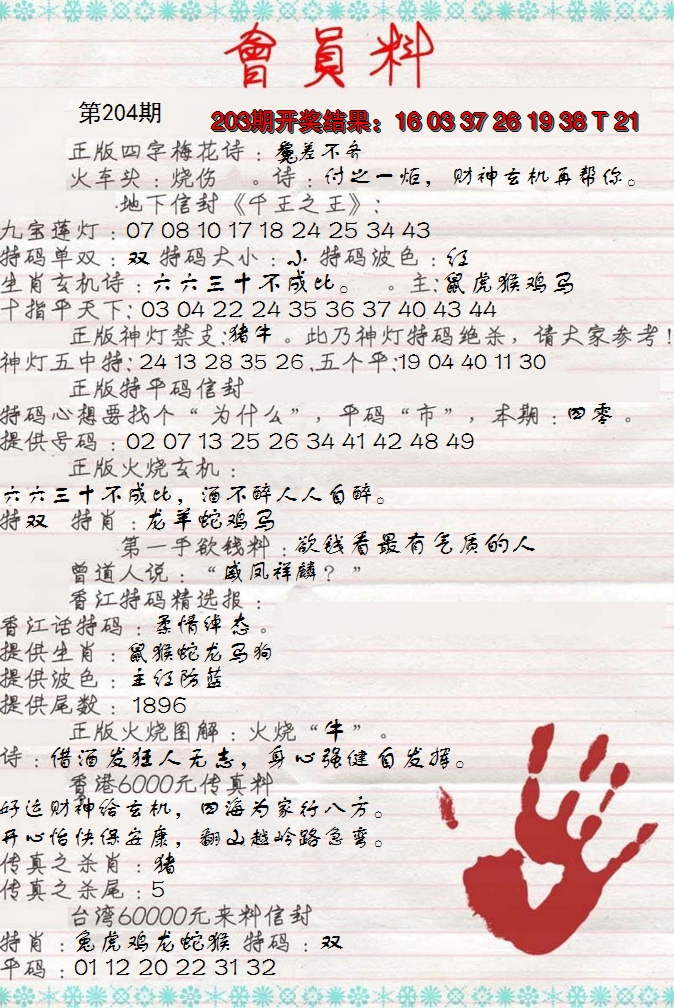 會員料
第204期
203期开奖结果：16 03 37 26 19 38 T 21
正版四字梅花诗：鸾差不齐
火车头：烧伤 。诗：付之一炬，财神玄机再帮你。
地下信封《千王之王》：
九宝莲灯：07 08 10 17 18 24 25 34 43
特码单双：双 特码大小：小 特码波色：红
生肖玄机诗：六六三十不成比。 。主：鼠虎猴鸡马
十指平天下：03 04 22 24 35 36 37 40 43 44
正版神灯禁支：猪牛。此乃神灯特码绝杀，请大家参考！
神灯五中特：24 13 28 35 26.五个平：19 04 40 11 30
正版特平码信封
特码心想要找个“为什么”，平码“市”，本期：四零。
提供号码：02 07 13 25 26 34 41 42 48 49
正版火烧玄机：
六六三十不成比，酒不醉人人自醉。
特双 特肖：龙羊蛇鸡马
第一手欲钱料：欲钱看最有气质的人
曾道人说：“威凤祥麟？”
香江特码精选报：
香江话特码：柔情绰态。
提供生肖：鼠猴蛇龙马狗
提供波色：主红防蓝
提供尾数：1896
正版火烧图解：火烧“牛”。
诗：借酒发狂人无志，身心强健自发挥。
香港6000元传真料
好运财神给玄机，四海为家行八方。
开心怡快保安康，翻山越岭路急弯。
传真之杀肖：猪
传真之杀尾：5
台湾60000元来料信封
特肖：兔虎鸡龙蛇猴 特码：双
平码：01 12 20 22 31 32